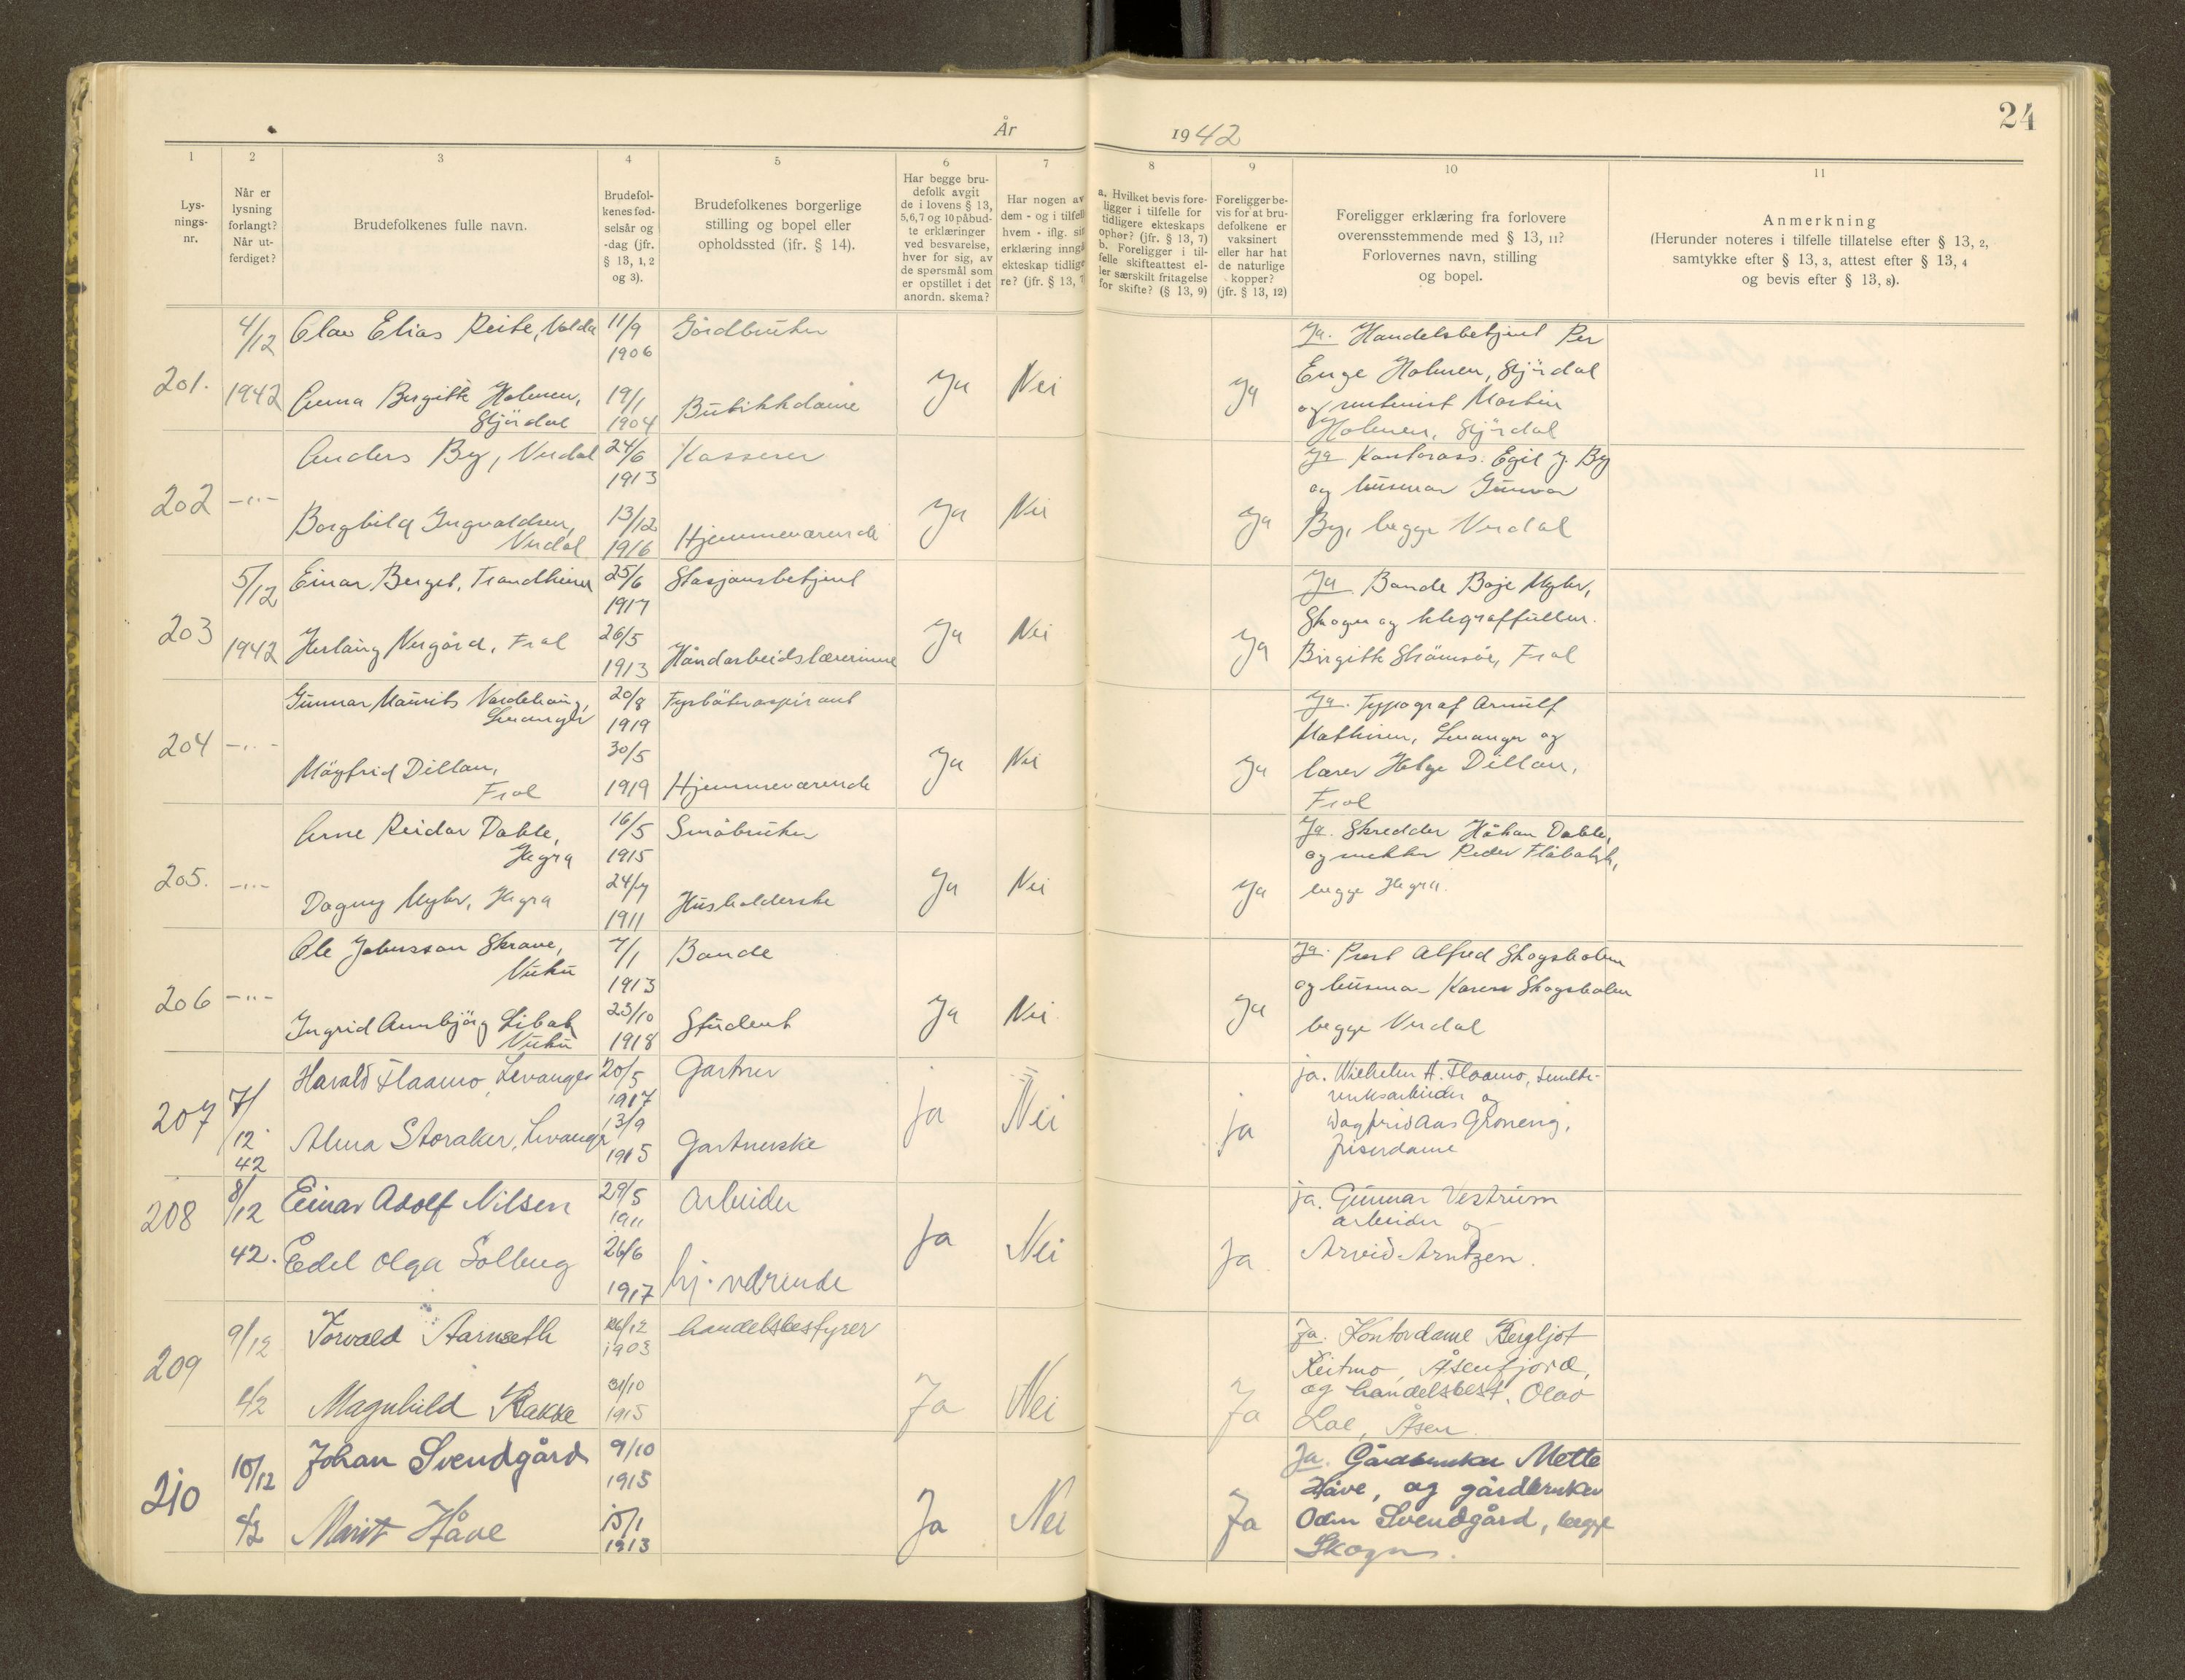 24
År 1942
1 2 3 4 5 6 7 8 9 10 11
Lys-
nings-
nr.
Når er
lysning
forlangt?
Når ut-
ferdiget?
Brudefolkenes fulle navn.
Brudefol-
kenes fød-
selsår og
-dag (jfr.
§ 13, 1, 2
og 3).
Brudefolkenes borgerlige
stilling og bopel eller
opholdssted (ifr. § 14).
Har begge bru-
defolk avgit
de i lovens § 13,
5,6,7 og 10 påbud-
te erklæringer
ved besvarelse,
hver for sig, av
de spørsmål som
er opstillet i det
anordn. skema?
Har nogen av
dem - og i tilfell
hvem - iflg. sin
erklæring inngå
ekteskap tidlige
re? (jfr. § 13, 7
a. Hvilket bevis fore-
ligger i tilfelle for
tidligere ekteskaps
ophør? (jfr. § 13, 7)
b. Foreligger i til-
felle skifteattest el-
ler særskilt fritagelse
for skifte? (§ 13, 9)
Foreligger be-
vis for at bru-
defolkene er
vaksinert
eller har hat
de naturlige
kopper?
(jfr. § 13, 12)
Foreligger erklæring fra forlovere
overensstemmende med § 13, 11?
Forlovernes navn, stilling
og bopel.
Anmerkning
(Herunder noteres i tilfelle tillatelse efter § 13, 2,
samtykke efter § 13, 3, attest efter § 13, 4
og bevis efter § 13, 8).
201.
4/12
1942
Olav Elias Reite, Volda
11/9
1906
Gårdbruker
Anna Birgitte Holmen,
Stjørdal
19/1
1904
Butikkdame
Ja
Nei
Ja
Ja. Handelsbetjent Per
Enge Holmen, Stjørdal
og Martin
Holmen, Stjørdal
202
-"-
Anders By, Verdal
24/6
1913
Kasserer
Borghild Ingvaldsen,
Verdal
13/12
1916
Hjemmeværende
Ja
Nei
Ja
Ja Kontorass. Egil J. By
og husmor Gunvor
By, begge Verdal
203
5/12
1942
Einar Berget, Trondheim
25/6
1917
Stasjonsbetjent
Herlaug Nergård, Frol
26/5
1913
Håndarbeidslærerinne
Ja
Nei
Ja
Ja. Bonde Boje Myhr,
Skogn og telegraffullm.
Birgitte Strømsøe, Frol
204
-"-
Gunnar Maurits Vardehaug,
Levanger
20/8
1919
Fyrbøteraspirant
Møyfrid Dillan,
Frol
30/5
1919
Hjemmeværende
Ja
Nei
Ja
Ja. Typograf Arnulf
Mathisen, Levanger og
lærer Helge Dillan,
Frol
205.
-"-
Arne Reidar Dahle,
Hegra
16/5
1915
Småbruker
Dagny Myhr, Hegra
24/7
1911
Husholderske
Ja
Nei
Ja
Ja. Skredder Håkon Dahle,
og snekker Peder
begge Hegra.
206
-"-
Ole Johnsson Skrove,
Vuku
7/1
1913
Bonde
Ingrid Annbjørg Libak
Vuku
23/10
1918
Student
Ja
Nei
Ja
Ja. Prest Alfred Skogsholm
og husmor Karen Skogsholm
begge Verdal
207
7/
12
42
Harald Flaamo, Levanger
20/5
1917
Gartner
Alma Storaker, Levanger
13/9
1915
Gartnerske
ja
Nei
ja
ja. Wilhelm A. Flaamo, smelte-
verksarbeider og
Dagfrid Aas Grøneng,
friserdame
208
8/12
42.
Einar Adolf Nilsen
29/5
1911
Arbeider
Edel Olga Solberg
26/6
1917
hj. værende
Ja
Nei
Ja
ja. Gunnar Vestrum
arbeider og
Arvid Arntzen.
209
9/12
42
Torvald Aarnseth
26/12
1903
handelsbestyrer
Magnhild Rakke
31/10
1915
Ja
Nei
Ja
Ja. Kontordame Bergljot
Reitmo, Åsenfjord,
og handelsbest. Olav
Loe, Åsen.
210
10/12
42
Johan Svendgård
9/10
1915
Marit Håve
15/1
1913
Ja
Nei
Ja
Ja. Gårdbruker Mette
Håve, og gårdbruker
Odin Svendgård, begge
Skogn.